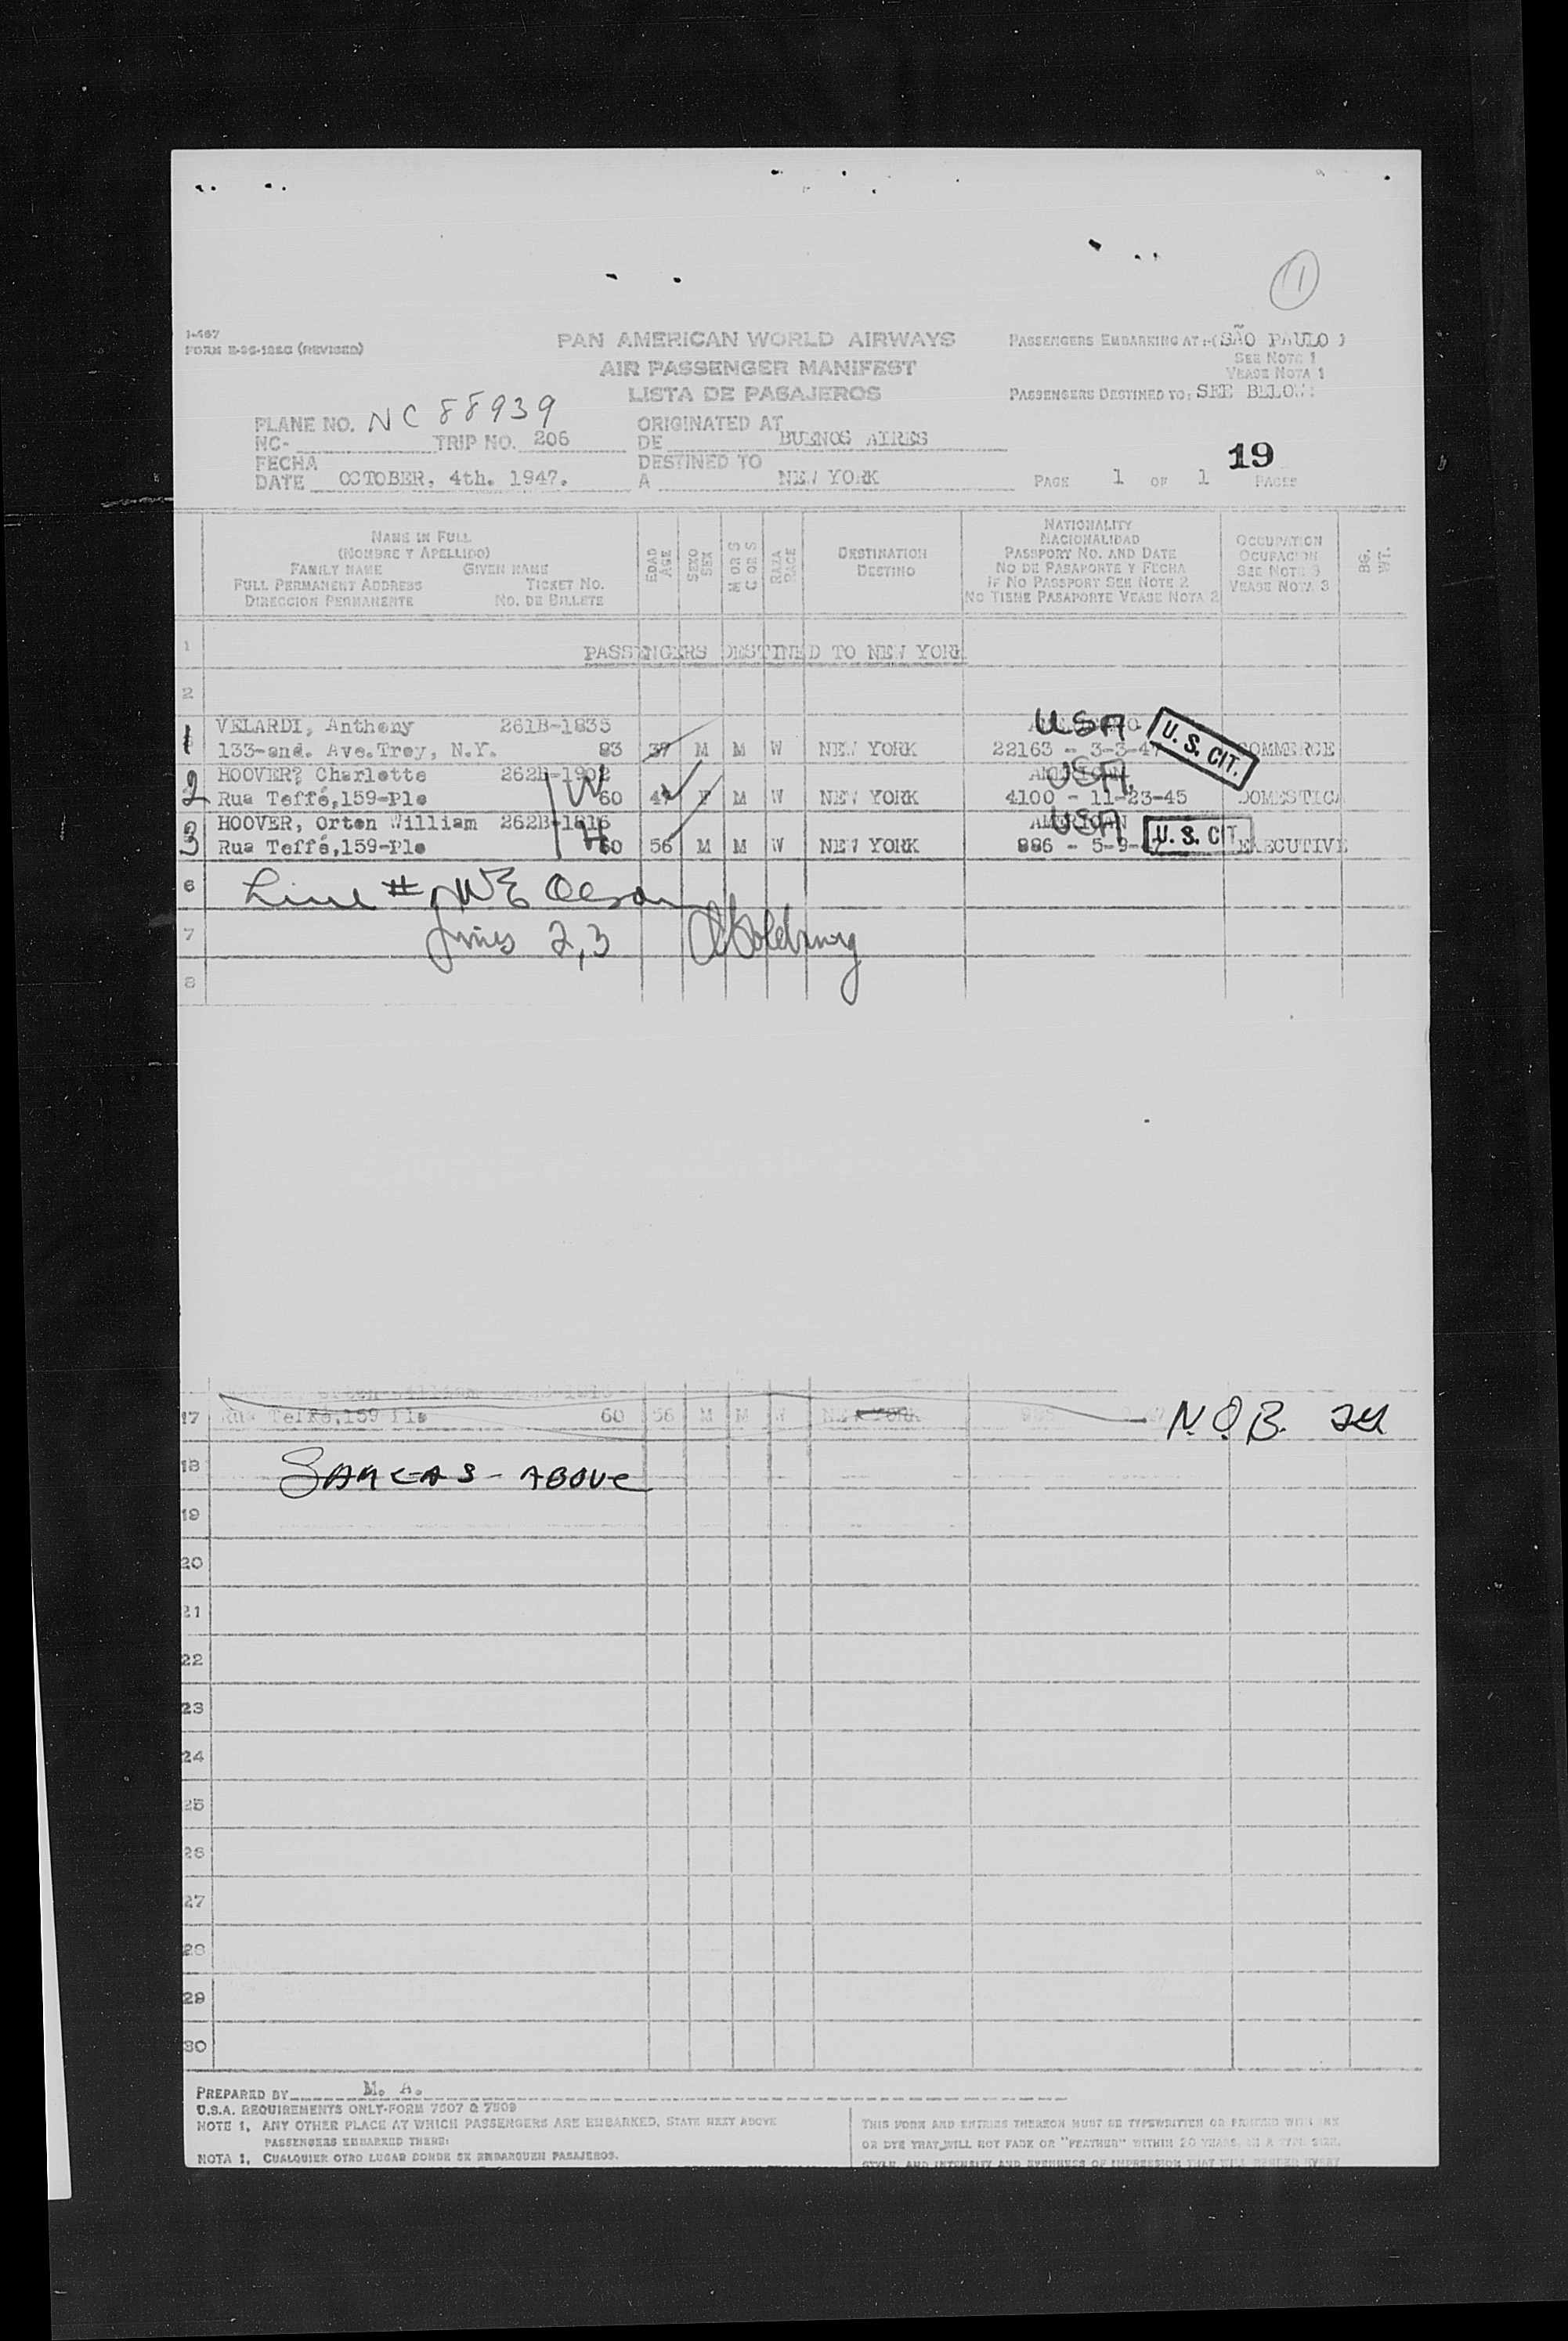 11
I-467
FORM E-96-122C (REVISED)
PAN AMERICAN WORLD AIRWAYS
AIR PASSENGER MANIFEST
LISTA DE PASAJEROS
PASSENGERS EMBARKING AT :-(SÃO PAULO )
SEE NOTE 1
VEASE NOTA 1
PASSENGERS DESTINED TO: SEE BELOW:
PLANE NO. NC 88939
NC- TRIP NO. 206
FECHA
DATE OCTOBER, 4th. 1947.
ORIGINATED AT
DE BUENOS AIRES
DESTINED TO
A NEW YORK
19
PAGE 1 OF 1 PAGES
NAME IN FULL
(NOMBRE Y APELLIDO)
FAMILY NAME GIVEN NAME
FULL PERMANENT ADDRESS TICKET NO.
DIRECCION PERMANENTE NO. DE BILLETE
EDAD AGE
SEXO SEX
M OR S C OR S
RAZA RACE
DESTINATION
DESTINO
NATIONALITY
NACIONALIDAD
PASSPORT NO. AND DATE
NO DE PASAPORTE Y FECHA
IF NO PASSPORT SEE NOTE 2
NO TIENE PASAPORTE VEASE NOTA 2
OCCUPATION
OCUPACION
SEE NOTE 3
VEASE NOTA 3
BG. WT.
1 PASSENGERS DESTINED TO NEW YORK
2
1 VELARDI, Anthony 261B-1835 USA U. S. CIT.
133-and. Ave.Troy, N.Y. 83 37 M M W NEW YORK 22163 - 3-3-47 COMMERCE
2 HOOVER? Charlotte 262B-1902 W AMERICAN USA
Rua Teffé,159-Ple 60 47 F M W NEW YORK 4100 - 11-23-45 DOMESTICA
3 HOOVER, Orton William 262B-1816 H AMERICAN USA U. S. CIT.
Rua Teffé,159-Ple 60 56 M M W NEW YORK 886 - 5-9- EXECUTIVE
6 Line # WE Olson
7 Lines 2,3 Goldberg
8
17 Rua Teffé,159-Ple 60 56 M M W NEW YORK N.O.B.
18 SAME AS - ABOVE
19
20
21
22
23
24
25
26
27
28
29
30
PREPARED BY M. A.
U.S.A. REQUIREMENTS ONLY-FORM 7507 & 7509
NOTE 1. ANY OTHER PLACE AT WHICH PASSENGERS ARE EMBARKED, STATE NEXT ABOVE
PASSENGERS EMBARKED THERE:
NOTA 1. CUALQUIER OTRO LUGAR DONDE SE EMBARQUEN PASAJEROS.
THIS FORM AND ENTRIES THEREON MUST BE TYPEWRITTEN OR PRINTED WITH INK
OR DYE THAT WILL NOT FADE OR "FEATHER" WITHIN 20 YEARS, IN A TYPE SIZE,
STYLE, AND INTENSITY AND EVENNESS OF IMPRESSION THAT WILL RENDER EVERY